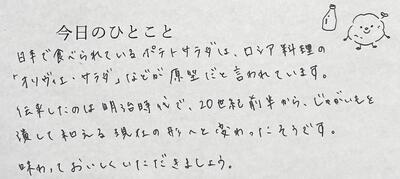 今日のひとこと
日本で食べられているポテトサラダは、ロシア料理の
「オリヴィエ・サラダ」などが原型だと言われています。
伝来したのは明治時代で、20世紀前半から、じゃがいもを
潰して和える現在の形へと変わったそうです。
味わっておいしくいただきましょう。